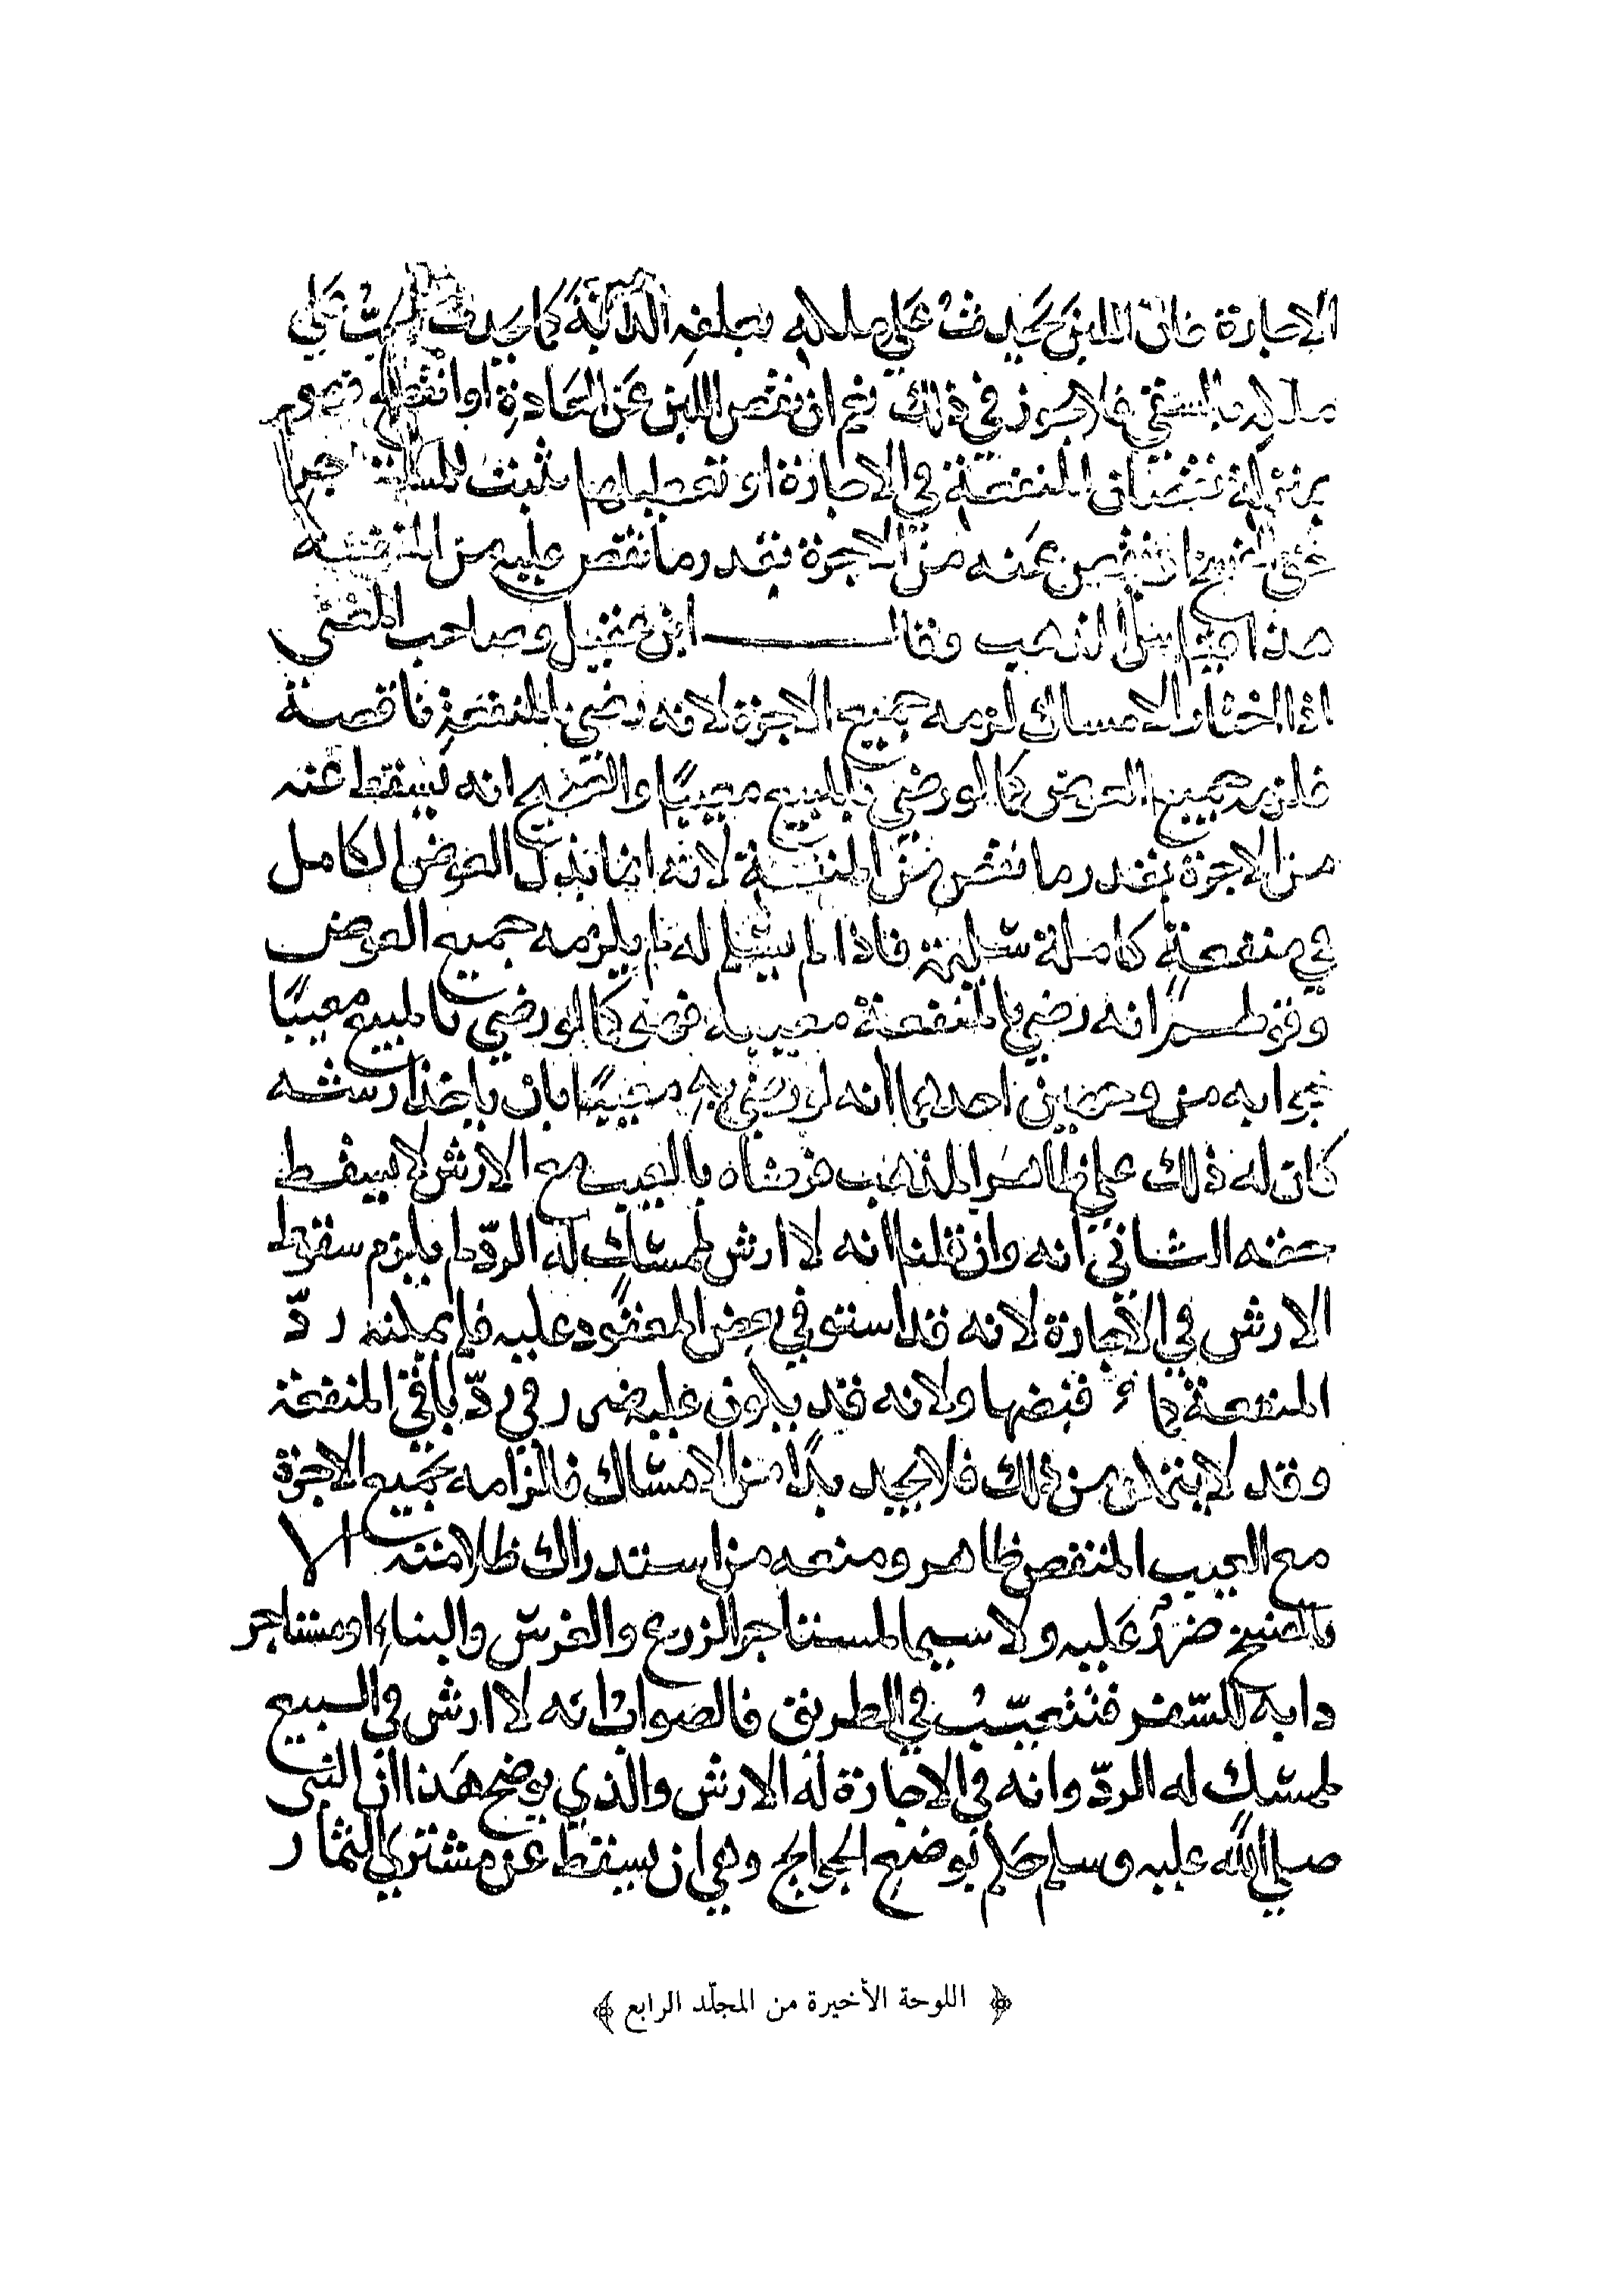 الاجارة فان اللبن يحدث علي ملكه بعلفه الدابة كما يحدث الحب علي
ملكه بالسقي فلا يجوز في ذلك نعم ان نقص اللبن عن العادة او انقطع فهو
بمنزلة نقصان المنفعة في الاجارة او تعطيلها يثبت للمستاجر
حق الفسخ او ينقص عنه من الاجرة بقدر ما نقص عليه من المنفعة
هذا قياس المذهب وقال ابن عقيل وصاحب المغني
اذا اختار الامساك لزمه جميع الاجرة لانه رضي بالمنفعة ناقصة
فلزمه جميع العوض كما لو رضي بالمبيع معيبًا والصحيح انه يسقط عنه
من الاجرة بقدر ما نقص من المنفعة لانه انما بذل العوض الكامل
في منفعة كاملة سليمة فاذا لم يسلم له لم يلزمه جميع العوض
وقولهم انه رضي بالمنفعة معيبه فهو كما لو رضي بالمبيع معيبًا
جوابه من وجهين احدهما انه لو رضي به معيبًا بان ياخذ ارشه
كان له ذلك علي ظاهر المذهب فرضاه بالعيب مع الارش لا يسقط
حقه الثاني انه وان قلنا انه لا ارش لممسك له الردّ لم يلزم سقوط
الارش في الاجارة لانه قد استوفي بعض المعقود عليه فلم يمكنه ردّ
المنفعة كما قبضها ولانه قد يكون عليه ضرر في ردّ باقي المنفعة
وقد لا يتمكن من ذلك فلا يجد بدًا من الامساك فالزامه بجميع الاجرة
مع العيب المنقص ظاهر ومنعه من استدراك ظلامته الا
بالفسخ ضرر عليه ولا سيما لمستاجر الزرع والغرس والبناء او مستاجر
دابه للسّفر فتتعيّب في الطريق فالصواب انه لا ارش في المبيع
لممسك له الردّ وانه في الاجارة له الارش والذي يوضح هذا ان النبي
صلي الله عليه وسلم حكم بوضع الجوايح وهي ان يسقط عن مشتري الثمار
﴿ اللوحة الأخيرة من المجلّد الرابع ﴾